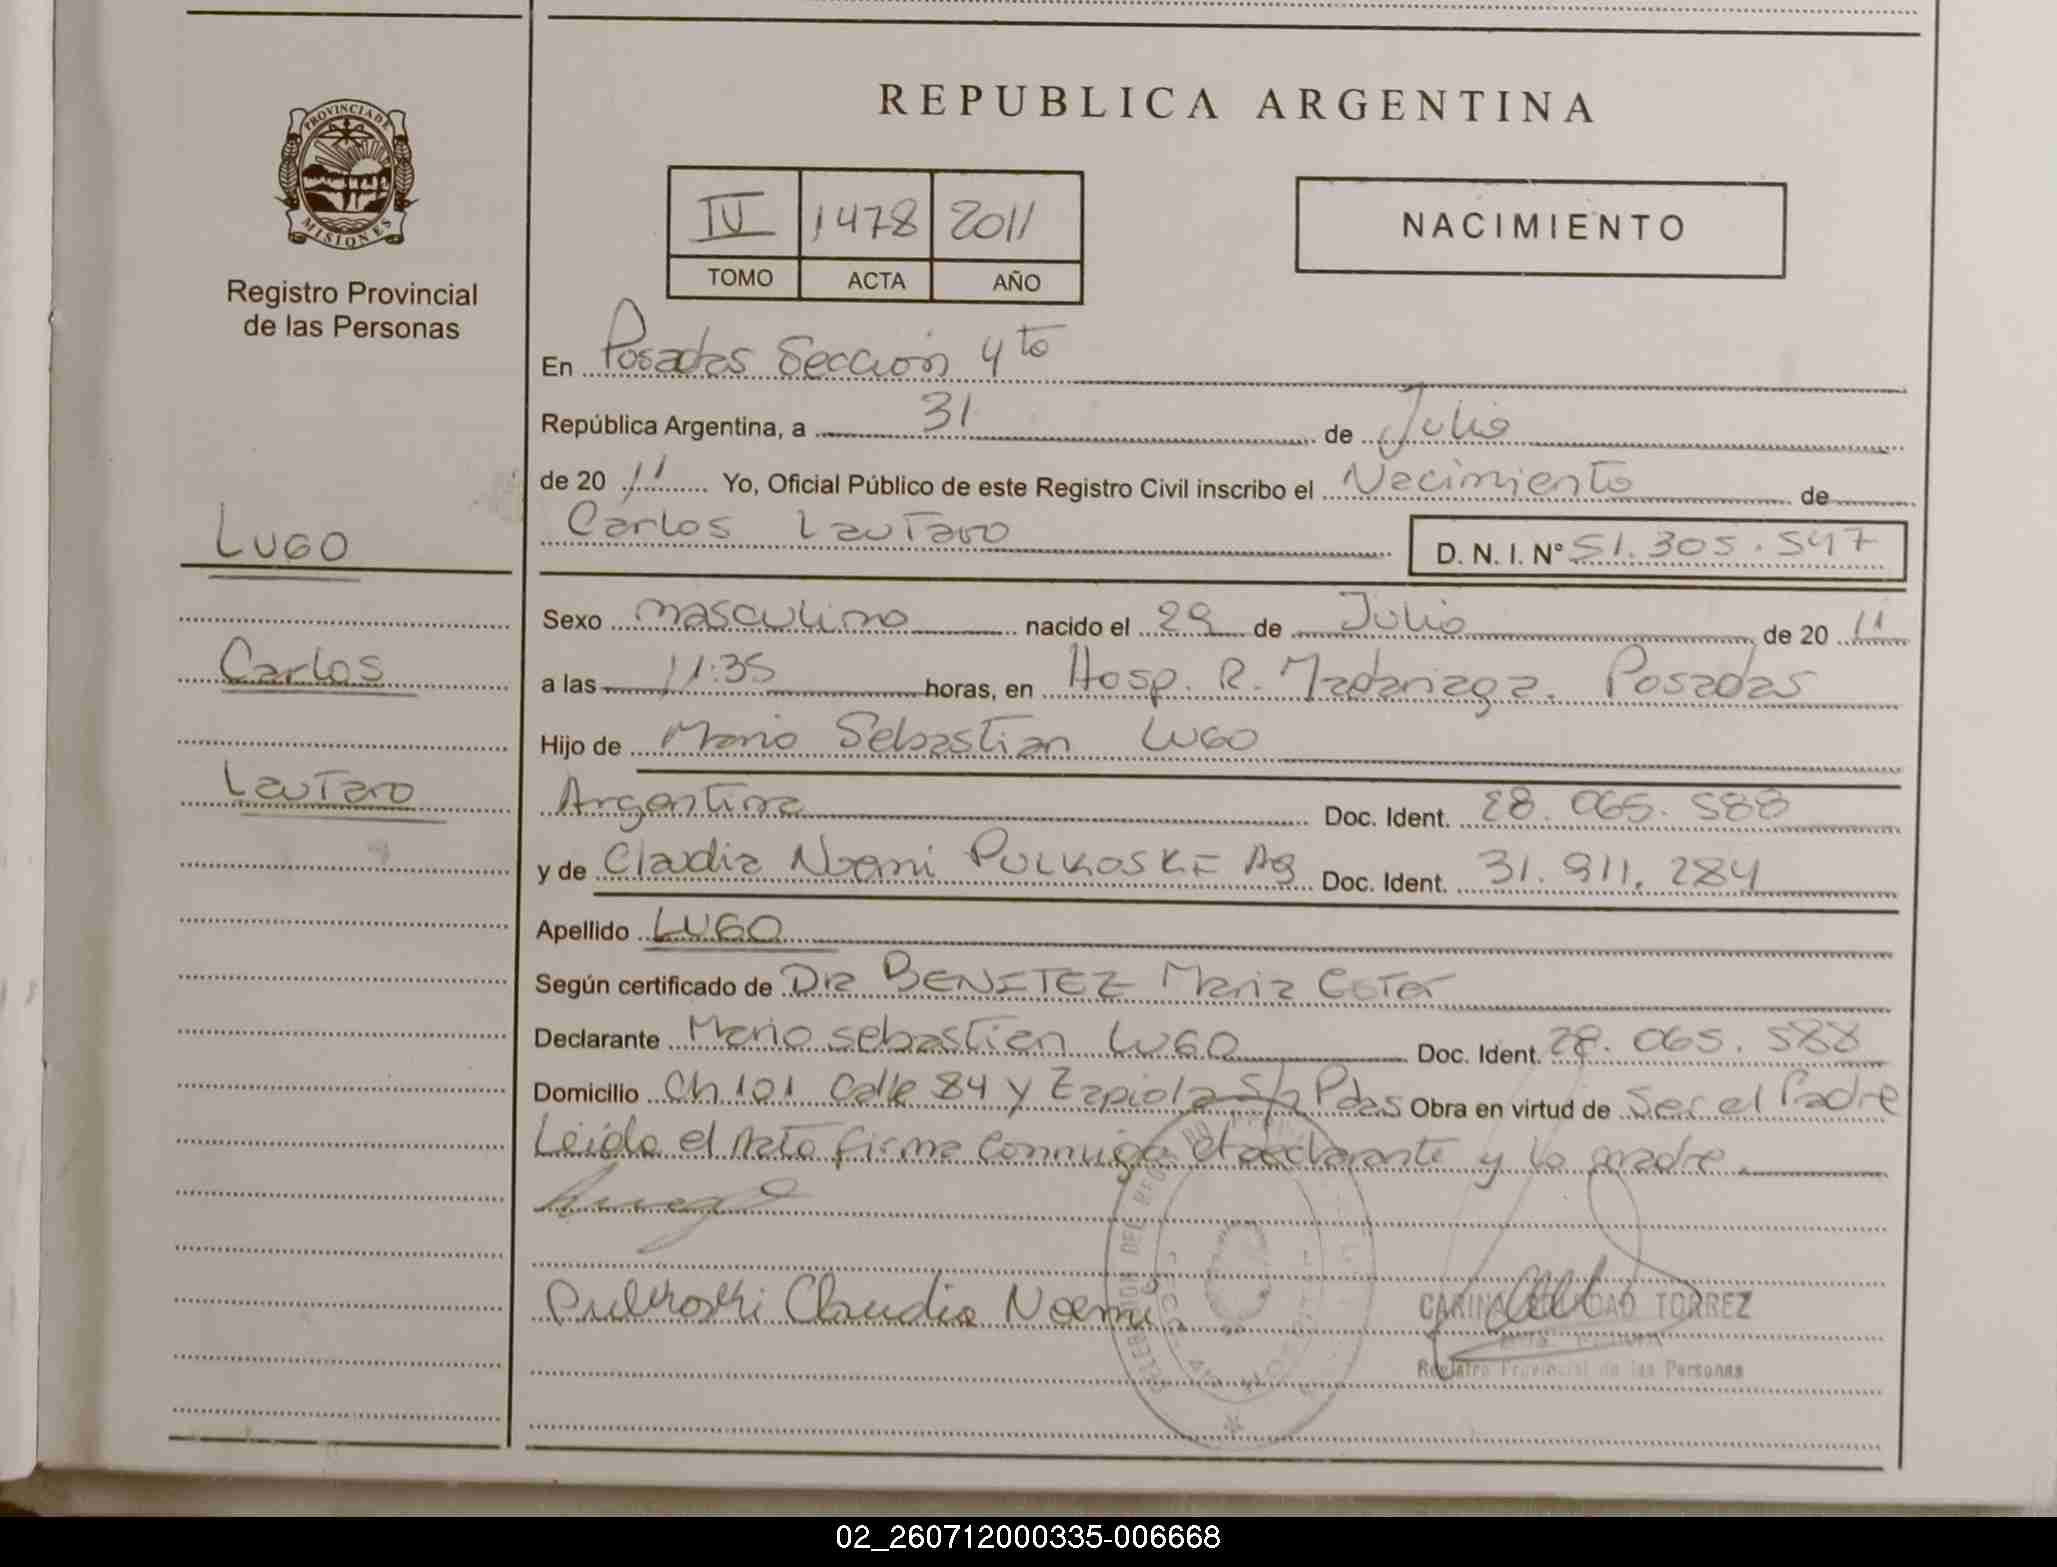 REPUBLICA ARGENTINA
PROVINCIA DE
MISIONES
Registro Provincial
de las Personas
IV 1478 2011
TOMO ACTA AÑO
NACIMIENTO
En Posadas Sección 4to
República Argentina, a 31 de Julio
de 20 11 Yo, Oficial Público de este Registro Civil inscribo el Nacimiento de
Carlos Lautaro D. N. I. N° 51.305.547
LUGO
Carlos
Lautaro
Sexo masculino nacido el 29 de Julio de 20 11
a las 11:35 horas, en Hosp. R. Madariaga. Posadas
Hijo de Mario Sebastian LUGO
Argentina Doc. Ident. 28.065.588
y de Claudia Noemi PULKOSKI Ag Doc. Ident. 31.911.284
Apellido LUGO
Según certificado de Dra BENITEZ Maria
Declarante Mario Sebastian LUGO Doc. Ident. 28.065.588
Domicilio Ch 101 Calle 84 y Zapiola S/n Pdas Obra en virtud de Ser el Padre
Leída el Acta firma conmigo el declarante y la madre.
Pulkoski Claudia Noemi
CARINA TORREZ
Registro Provincial de las Personas
02_260712000335-006668